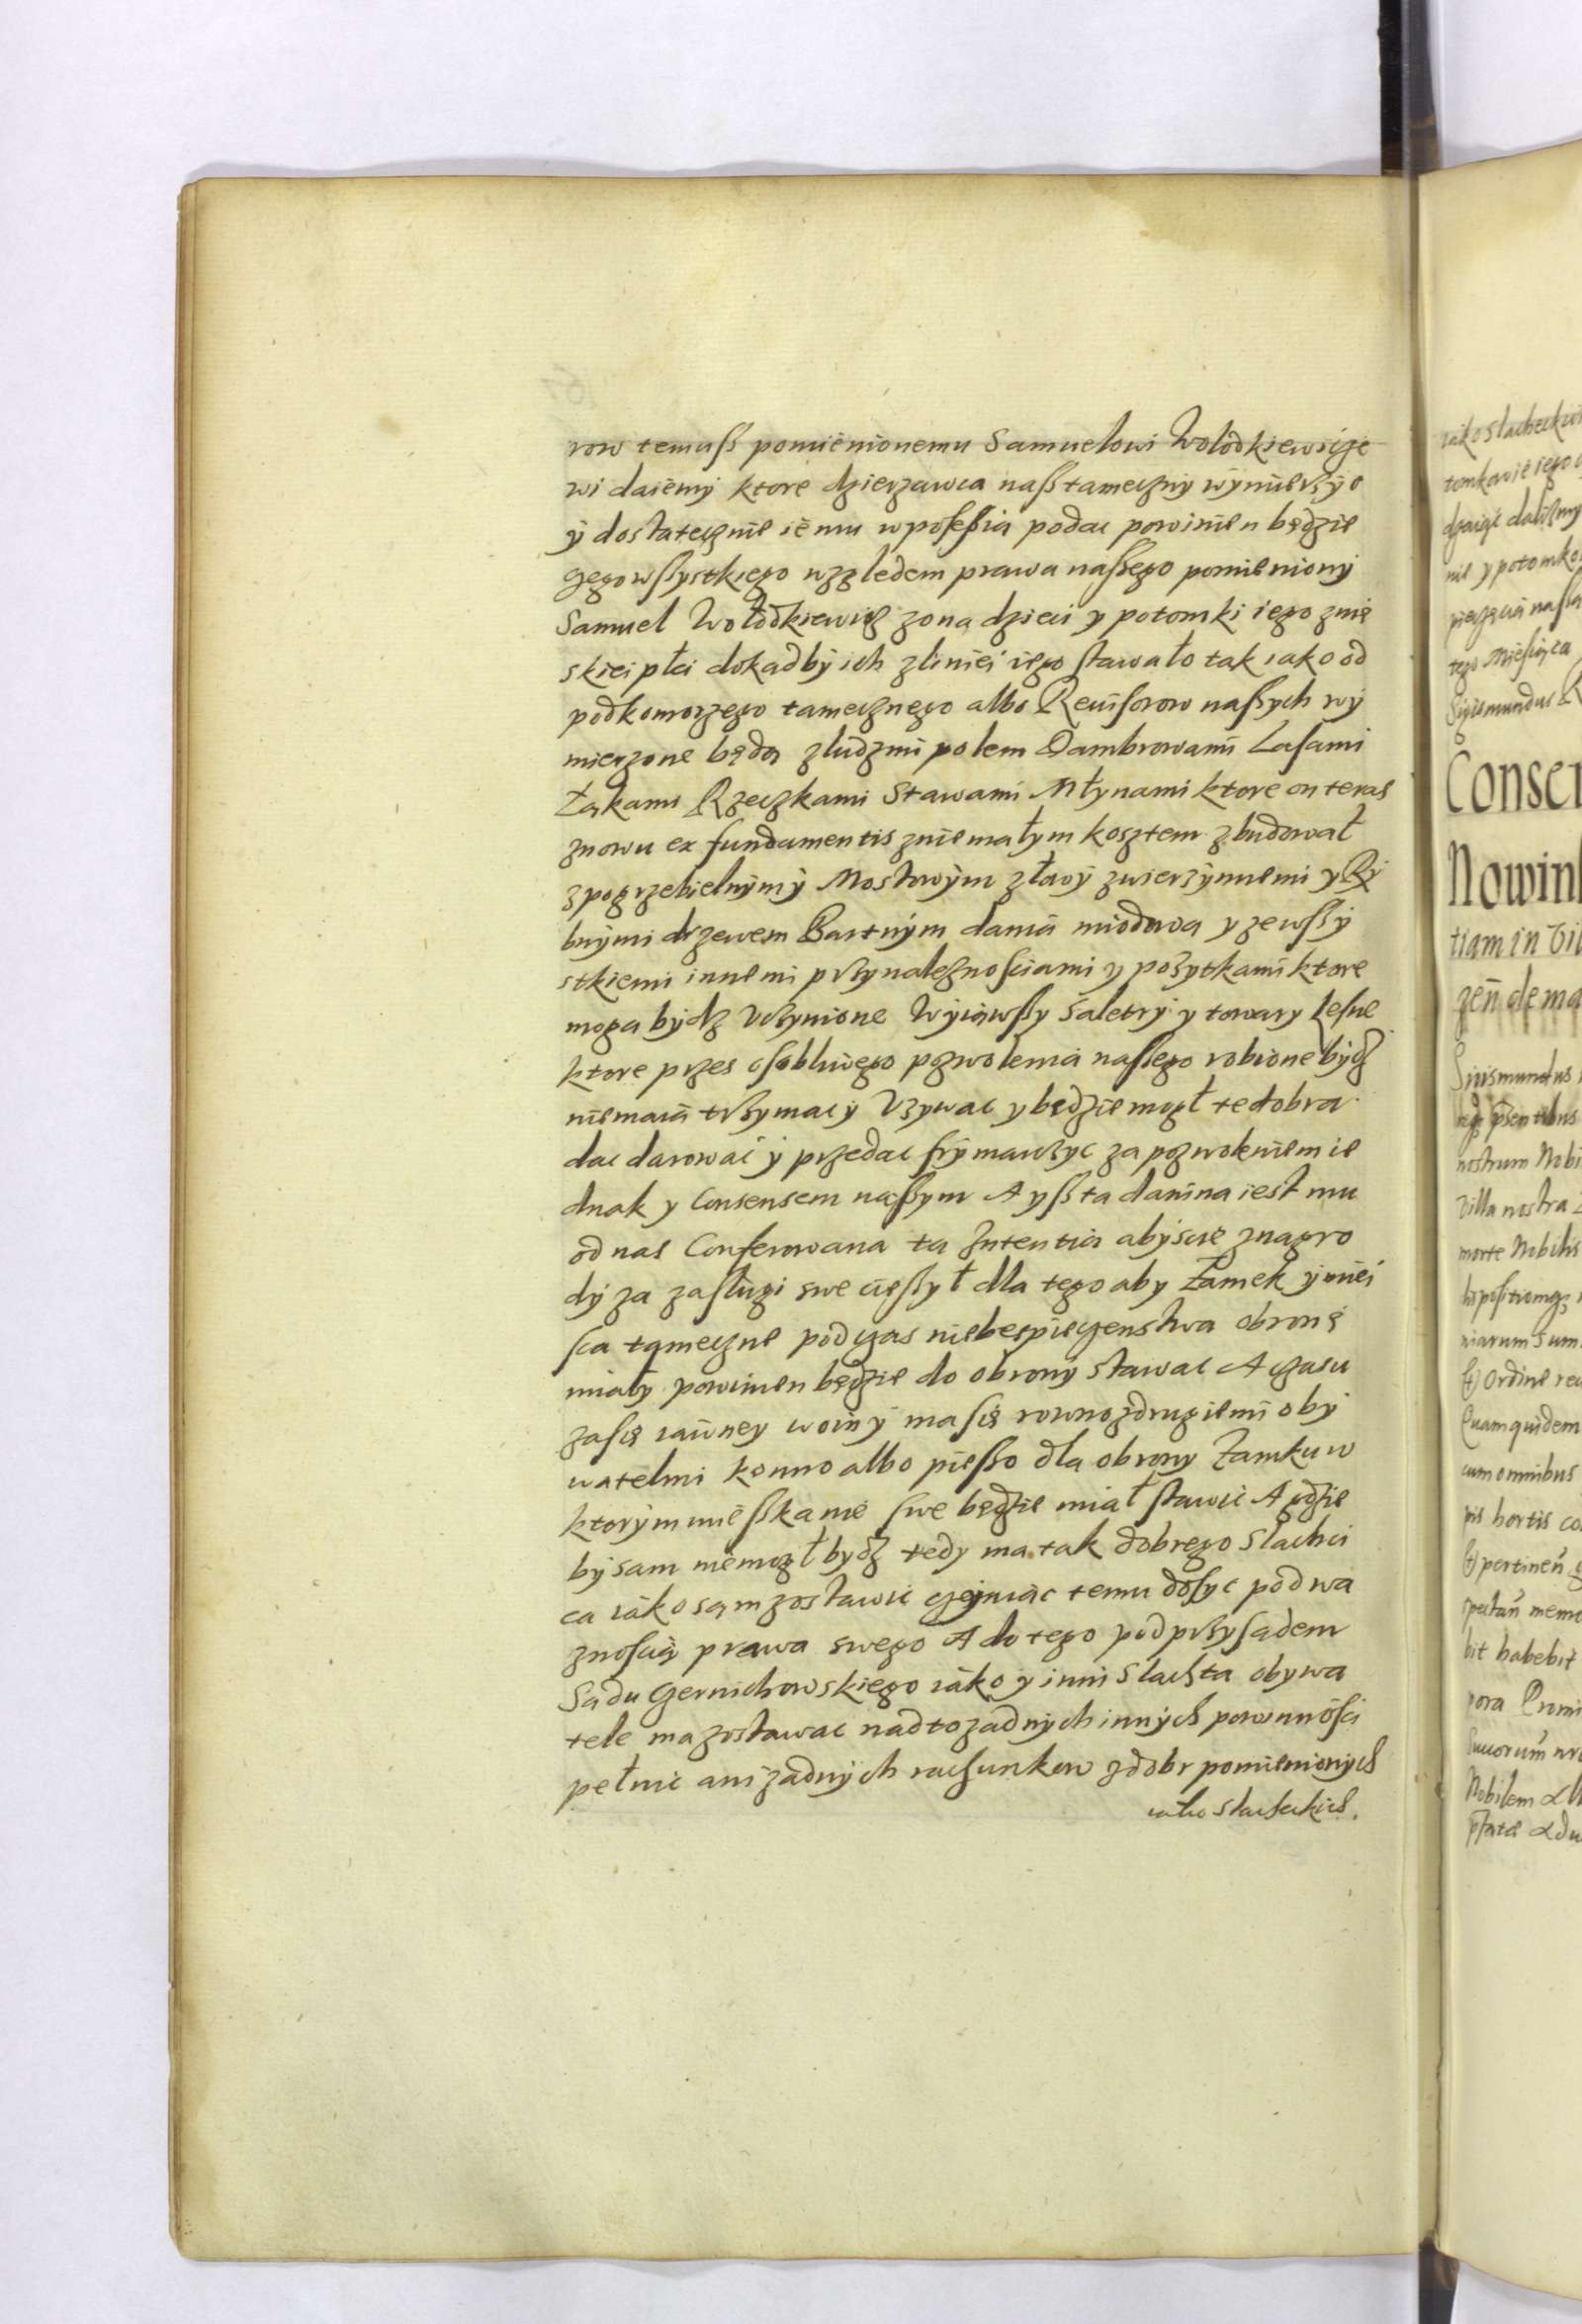 row temuſs pomiēnionemu Samuelowi Wolodkiewicze
wi daiēmÿ ktore dzierzawca naſs tamecznÿ wÿmierzÿc
ÿ dostatecznie iēmu w poſeſsia podac powinien będzie
czego wſsystkiego względem prawa naſsego pomieniony
Samuel Wołodkiewicz zona dzieci y potomki iego znię
skiei płci dokadbÿ ich zliniēi iego stawało tak iako od
podkomorzego tamecznego albo Reuiſorow naſsych wÿ
mierzone będa zludzmi polem Dambrowami Laſami
Łąkami Rzeczkami Stawami Młynami ktore on teras
znowu ex fundamentis zniemałym kosztem zbudował
z pogrzebielnÿmÿ Mostowÿm złowÿ zwierzÿnnemi y Rÿ
bnÿmi drzewem Bartnÿm daniā miodowa y zewſsÿ
stkiemi innemi przynaleznosciami y pozytkami ktore
moga bÿdz vczynione Wÿiąwſsy Saletrÿ y towary Leſne
ktore przes oſobliwego pozwolenia naſsego robione bÿdz
niemaiā trzymac ÿ Vzywac y będzie mogł te dobra
dac darowac ÿ przedac frÿmarczyc za pozwoleniem ie
dnak y Consensem naſsym A yſs ta danina iest mu
od nas Conferowana ta Intentia abÿ sie znagro
dÿ za zaslugi swe cieſsył dla tego aby Zamek ÿ miēi
ſca tameczne podczas niebespieczenstwa obronę
miały powinien będzie do obrony stawac A czasu
zaſię iawney woinÿ ma ſię rowno zdrugiemi obÿ
watelmi konno albo pieſso dla obrony Zamku w
ktorÿm miēſskanie ſwe będzie miał stawic A gdzie
bÿ sam niēmogł bydz tedy ma tak dobrego Slachci
ca iāko sam zostawic czÿniāc temu doſyc pod wa
znoſcią prawa swego A do tego pod przyſądem
Sądu Czernichowskiego iāko y inni Slachta obywa
tele ma zostawac nadto zadnych innÿch powinnoſci
pełnic ani zadnÿch rachunkow z dobr pomienionych
iako Slacheckich.

iako Slacheckich
tomkowiē iego
dzaiąc daliſmy
nie y potomko
pieczęcia naſſa
tego Mieſiąca
Sigismundus R
Consen
Nowin
tiam in vil
zen̄ de ma
Sigismundus
nostrum Nobi
Villa nostra
morte Nobilis
diſpoſitionq₃
niarum Sum
Ordine rec
Quam quidem
cum omnibus
pis hortis co
pertinen̄
spectan̄ memo
bit habebit
pora
Nobilem